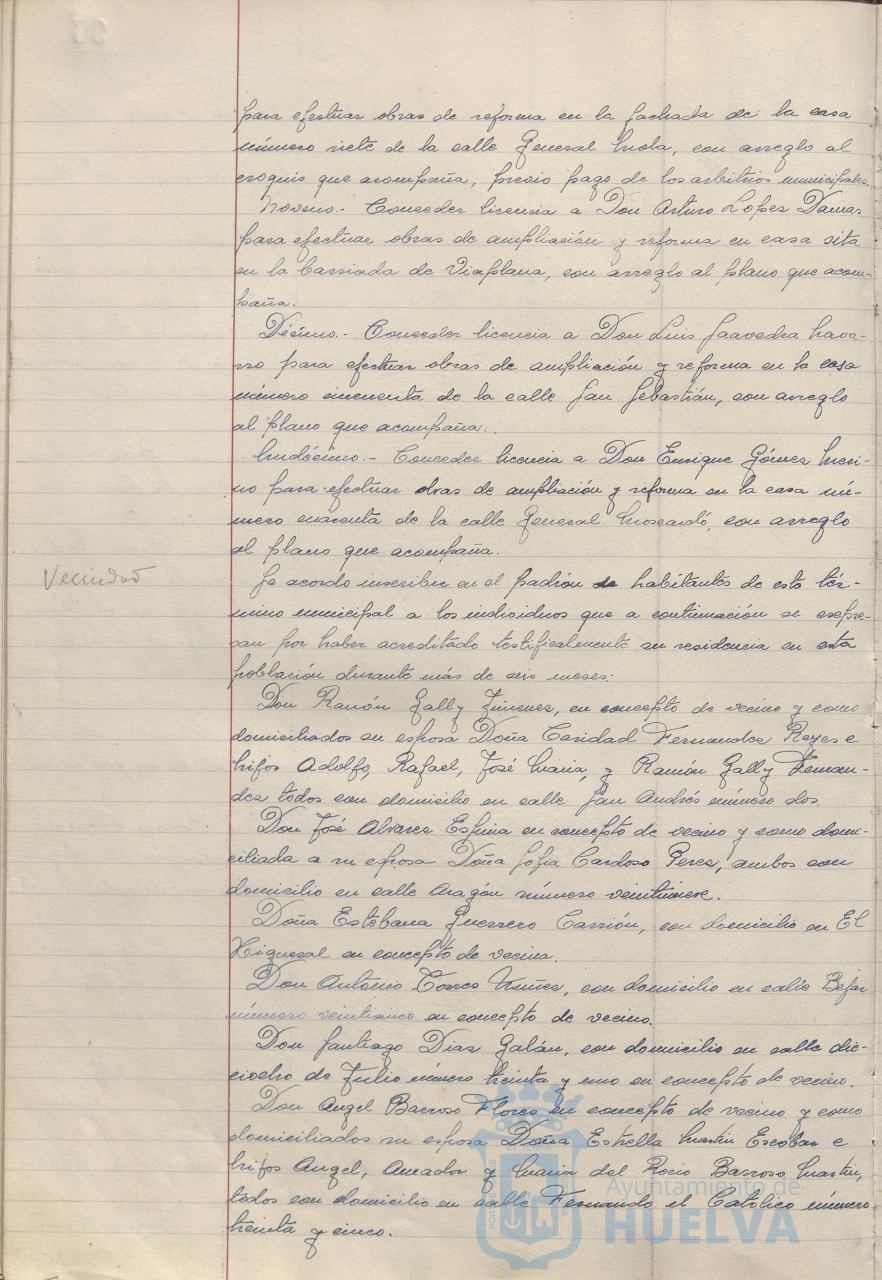 para efectuar obras de reforma en la fachada de la casa
número siete de la calle General Mola, con arreglo al
croquis que acompaña, previo pago de los arbitrios municipales.
Noveno.- Conceder licencia a Don Arturo Lopez Damas
para efectuar obras de ampliación y reforma en casa sita
en la barriada de Viaplana, con arreglo al plano que acom-
paña.
Décimo.- Conceder licencia a Don Luis Saavedra Nava-
rro para efectuar obras de ampliación y reforma en la casa
número cincuenta de la calle San Sebastián, con arreglo
al plano que acompaña.
Undécimo.- Conceder licencia a Don Enrique Gómez Meri-
no para efectuar obras de ampliación y reforma en la casa nú-
mero cuarenta de la calle General Moscardó, con arreglo
al plano que acompaña.
Vecindad
Se acordo inscribir en el padrón de habitantes de este tér-
mino municipal a los individuos que a continuación se expre-
san por haber acreditado testificalmente su residencia en esta
población durante más de seis meses:
Don Ramón Gally Jimenez, en concepto de vecino y como
domiciliados su esposa Doña Caridad Fernandez Reyes e
hijos Adolfo, Rafael, José Maria, y Ramón Gally Fernan-
dez todos con domicilio en calle San Andrés número dos.
Don José Alvarez Espina en concepto de vecino y como domi-
ciliada a su esposa Doña Sofia Cardoso Perez, ambos con
domicilio en calle Aragón número veintinueve.
Doña Estebana Guerrero Carrión, con domicilio en El
Higueral en concepto de vecina.
Don Antonio Torres Nuñez, con domicilio en calle Bejar
número veinticinco en concepto de vecino.
Don Santiago Diaz Galán, con domicilio en calle die-
ciocho de Julio número treinta y uno en concepto de vecino.
Don Angel Barroso Flores en concepto de vecino y como
domiciliados su esposa Doña Estrella Martin Escobar e
hijos Angel, Amador y Maria del Rocio Barroso Martin,
todos con domicilio en calle Fernando el Catolico número
treinta y cinco.
Ayuntamiento de
HUELVA